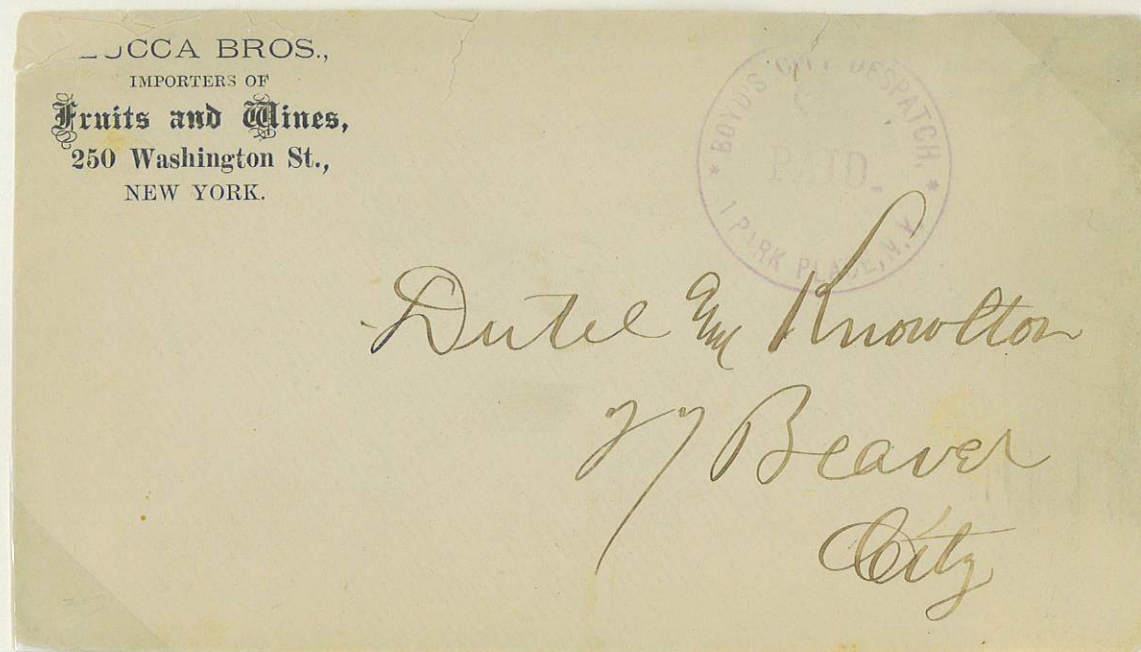 BROS.,
IMPORTERS OF
Fruits and Wines,
250 Washington St.,
NEW YORK.
* BOYD'S CITY DESPATCH, *
PAID.
1 PARK PLACE, N.Y.
Knowlton
77 Beaver
City